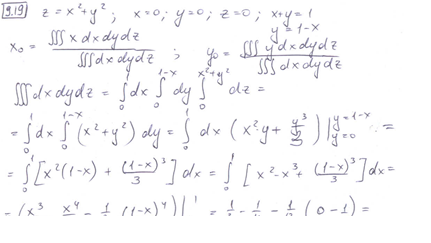 9.19 z = x² + y² ; x=0 ; y=0 ; z=0 ; x+y=1
y = 1-x
x₀ = ∭ x dxdydz / ∭ dxdydz ; y₀ = ∭ y dxdydz / ∭ dxdydz
∭ dxdydz = ∫₀¹ dx ∫₀^{1-x} dy ∫₀^{x²+y²} dz =
= ∫₀¹ dx ∫₀^{1-x} (x²+y²) dy = ∫₀¹ dx (x²y + y³/3) |_{y=0}^{y=1-x} =
= ∫₀¹ [x²(1-x) + (1-x)³/3] dx = ∫₀¹ [x²-x³ + (1-x)³/3] dx =